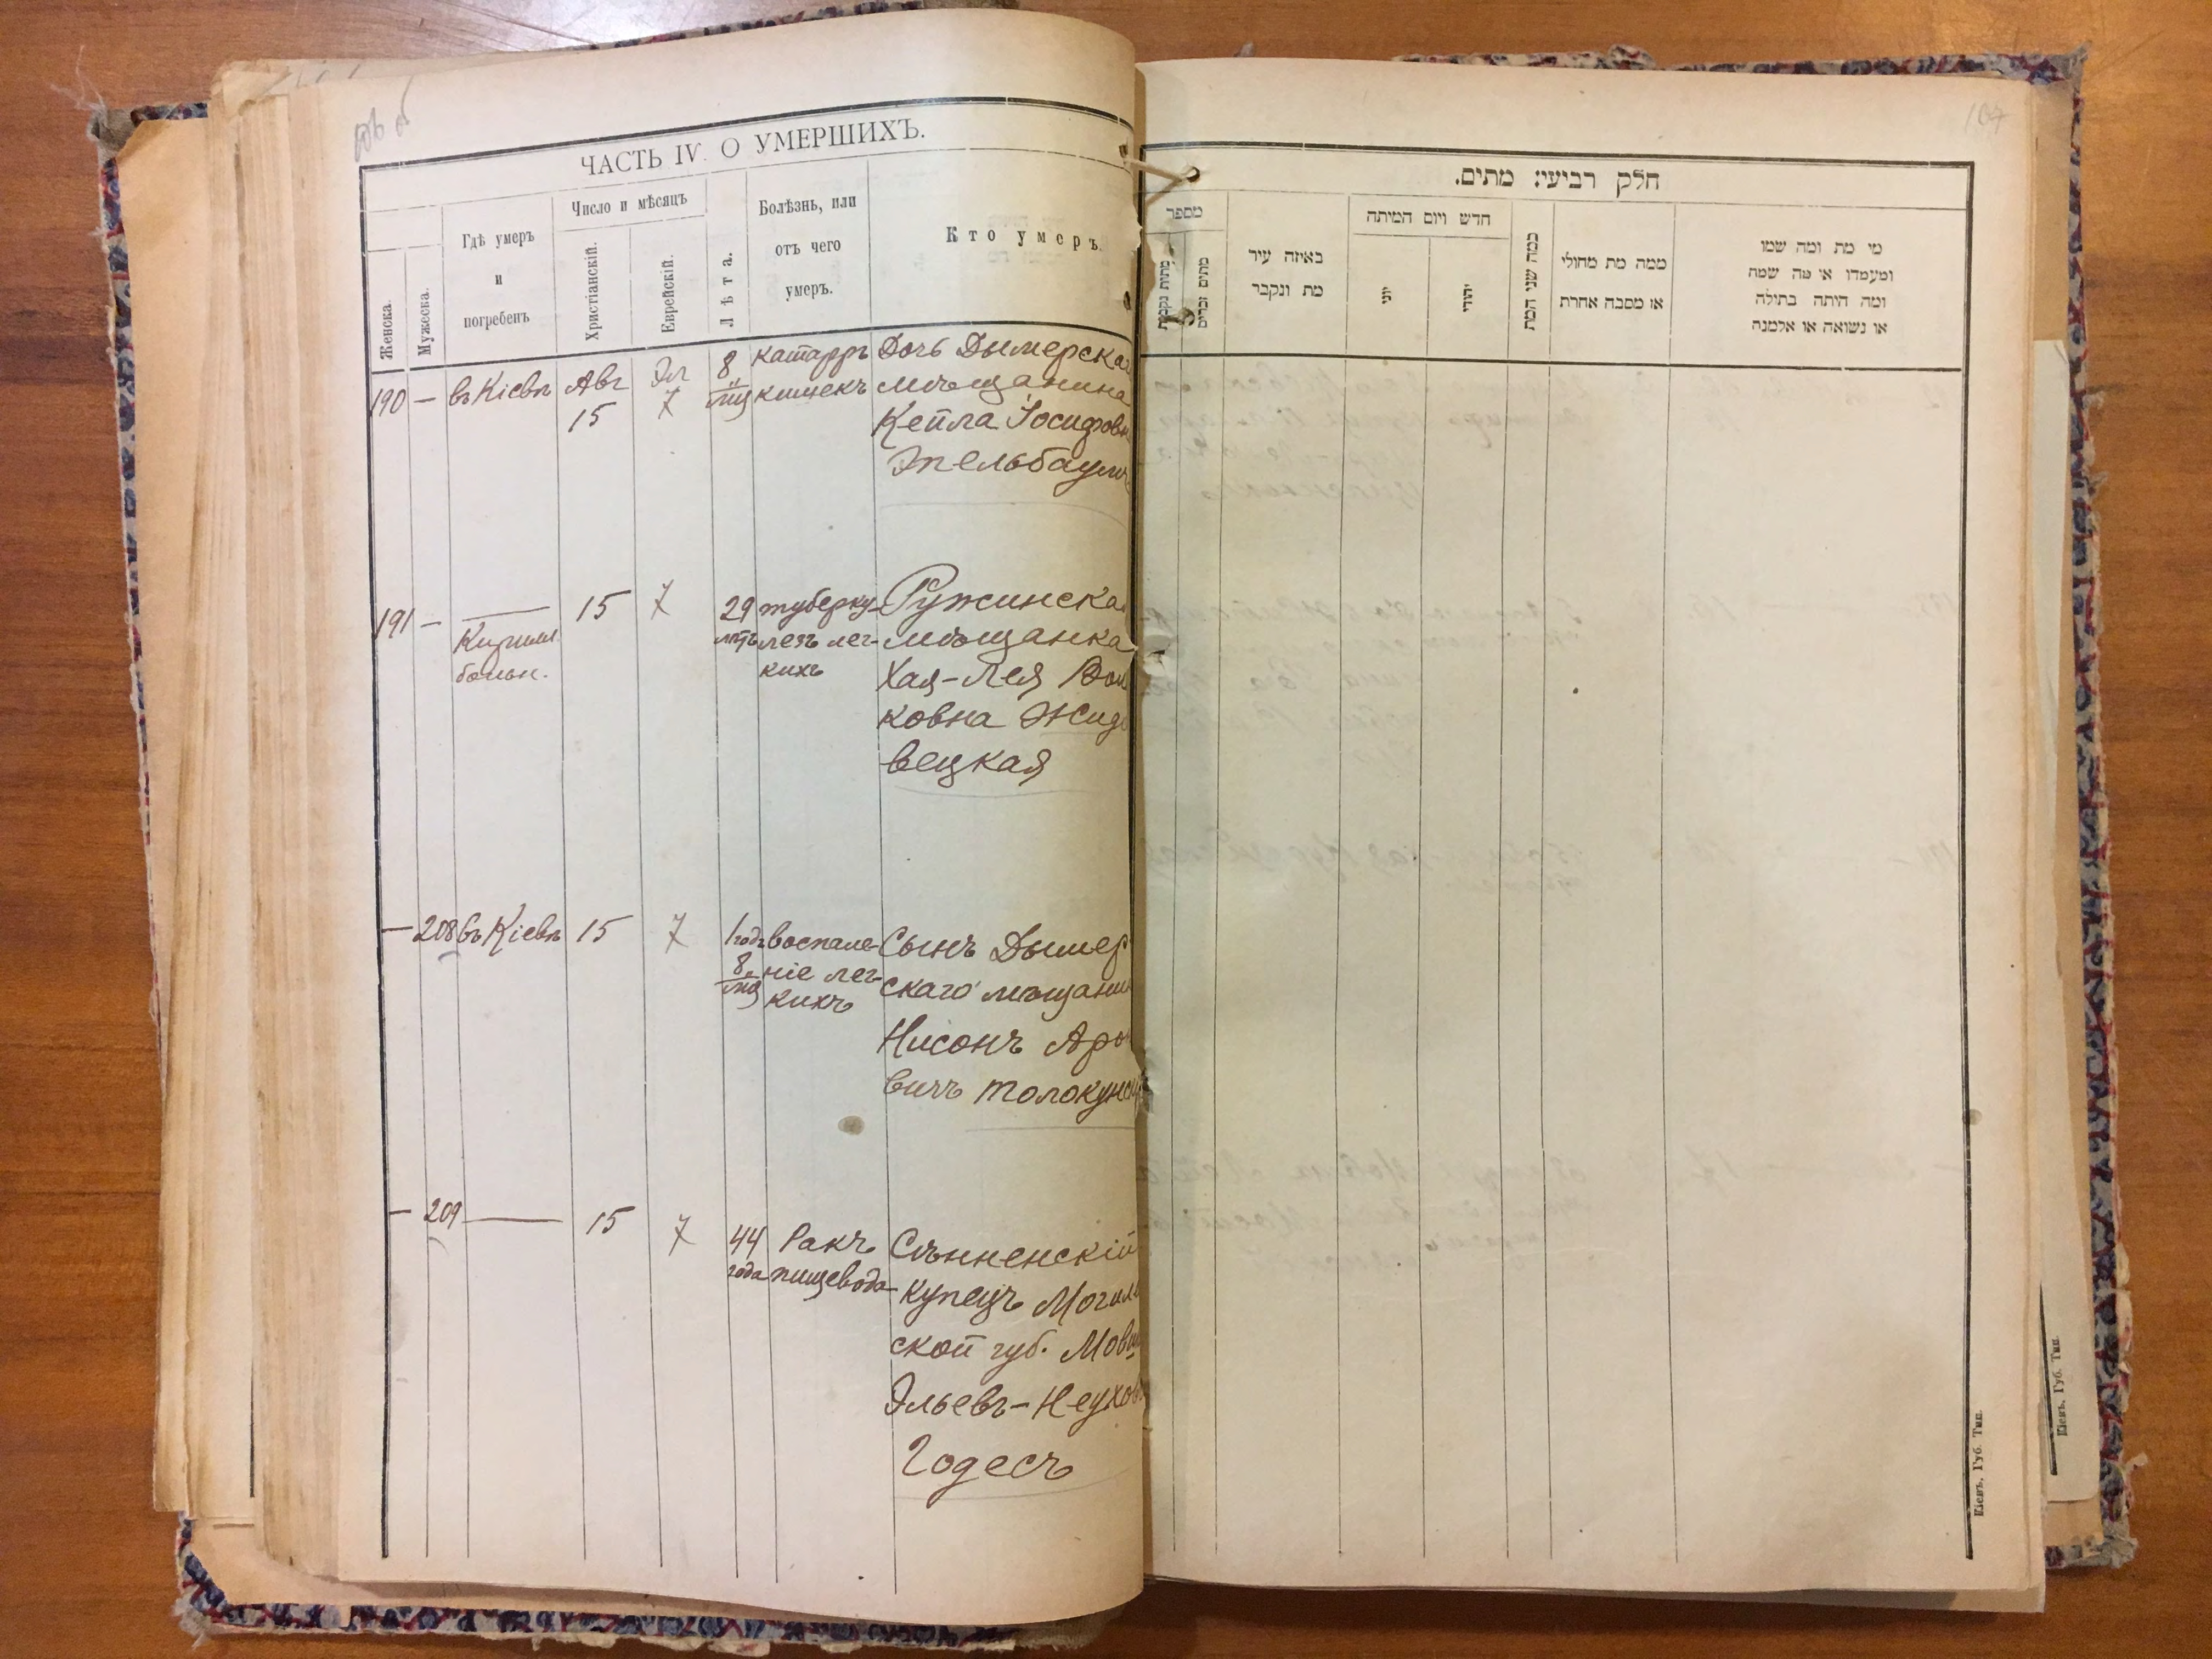 ЧАСТЬ IV. О УМЕРШИХЪ.
Женска.
Мужеска.
Гдѣ умеръ
и
погребенъ
Число и мѣсяцъ
Христіанскій.
Еврейскій.
Лѣта.
Болѣзнь, или
отъ чего
умеръ.
Кто умеръ.
190 — въ Кіевѣ Авг 15 Эл 7 8 мц
катарръ
кишекъ
Дочь Дымерска
мѣщанина
Кейла Іосифов
Эпельбаум
191 — —
Кирилл.
больн.
15 7 29 лѣтъ
туберку-
лезъ лег-
кихъ
Ружинска
мѣщанка
Хая-Лея Вол
ковна Жидо
вецкая
— 208 въ Кіевѣ 15 7 1 годъ 8 мц
воспале-
ніе лег-
кихъ
Сынъ Дымер
скаго мѣщани
Нисонъ Аро
вичъ Толокунск
— 209 — 15 7 44 года
Ракъ
пищевода
Сѣнненскій
купецъ Могил
ской губ. Мовш
Эльевъ-Неухов
Годесъ
107
חלק רביעי: מתים.
מספר
מתות נקבות
מתים זכרים
באיזה עיר
מת ונקבר
חדש ויום המיתה
יוני
יהודי
כמה שני המת
ממה מת מחולי
או מסבה אחרת
מי מת ומה שמו
ומעמדו או מה שמה
ומה היתה בתולה
או נשואה או אלמנה
Кіевъ. Губ. Тип.
Кіевъ. Губ. Тип.